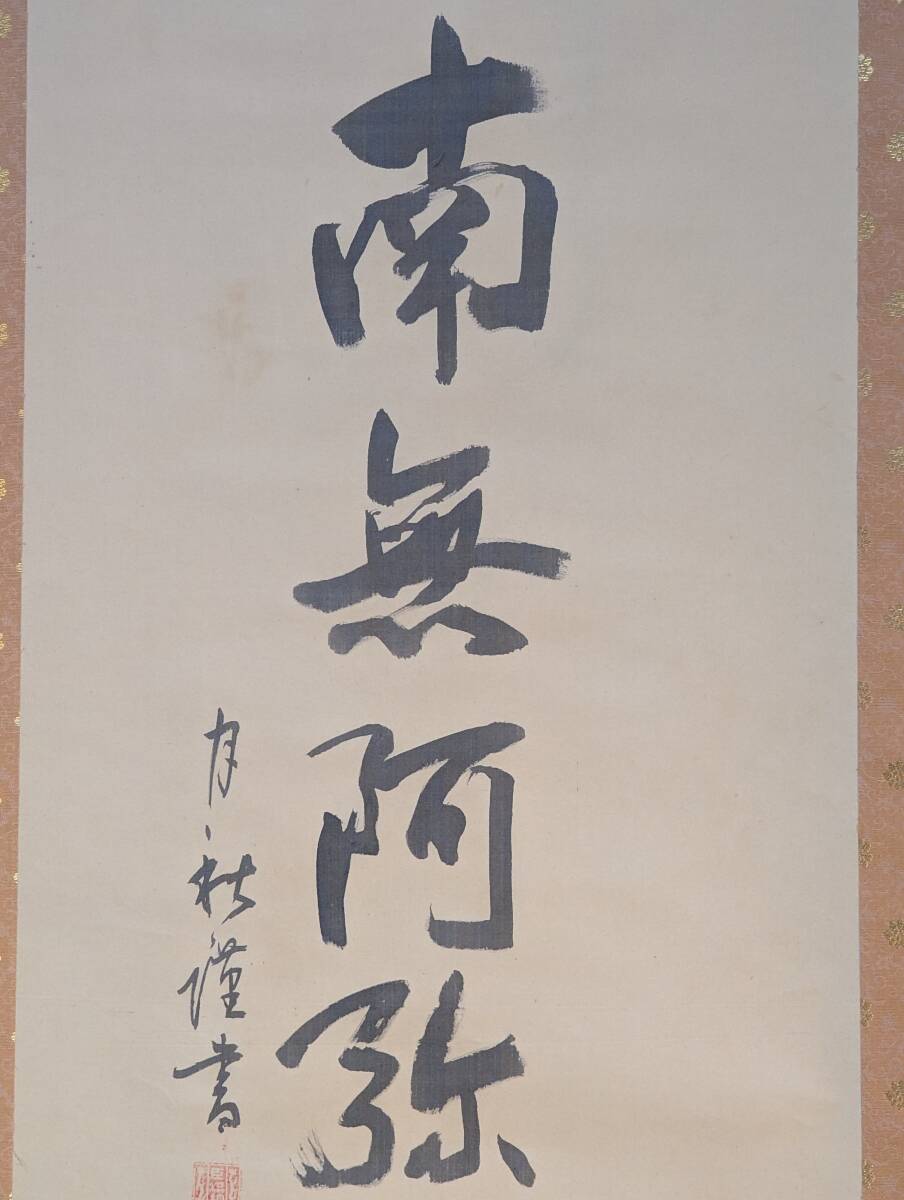 南無阿弥
月秋謹書